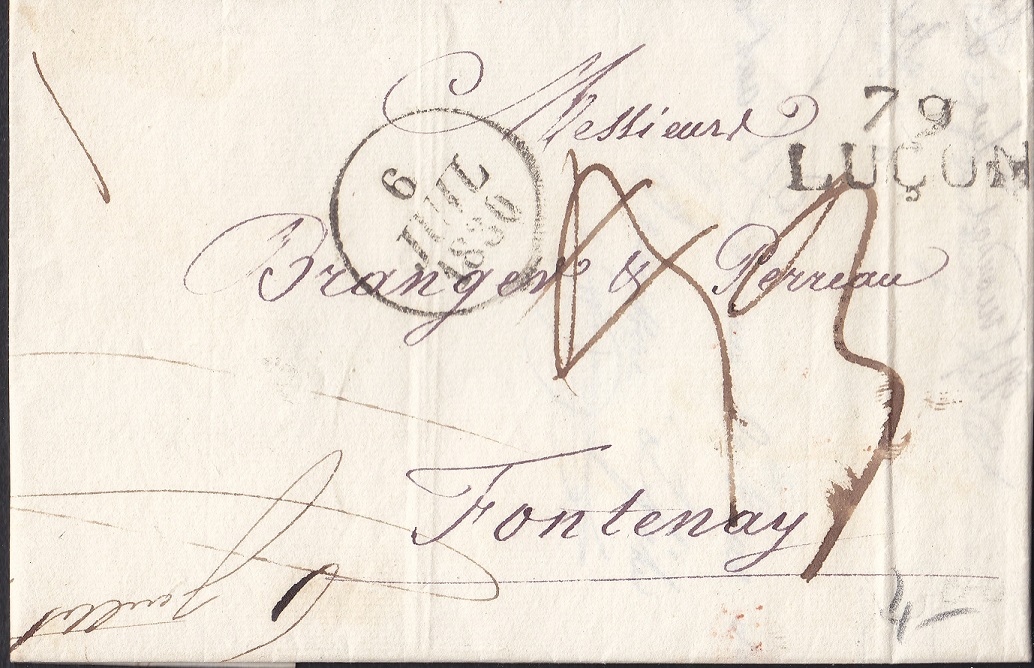 Messieurs
79
LUÇON
6
JUIL
1830
Branger & Perreau
Fontenay
4